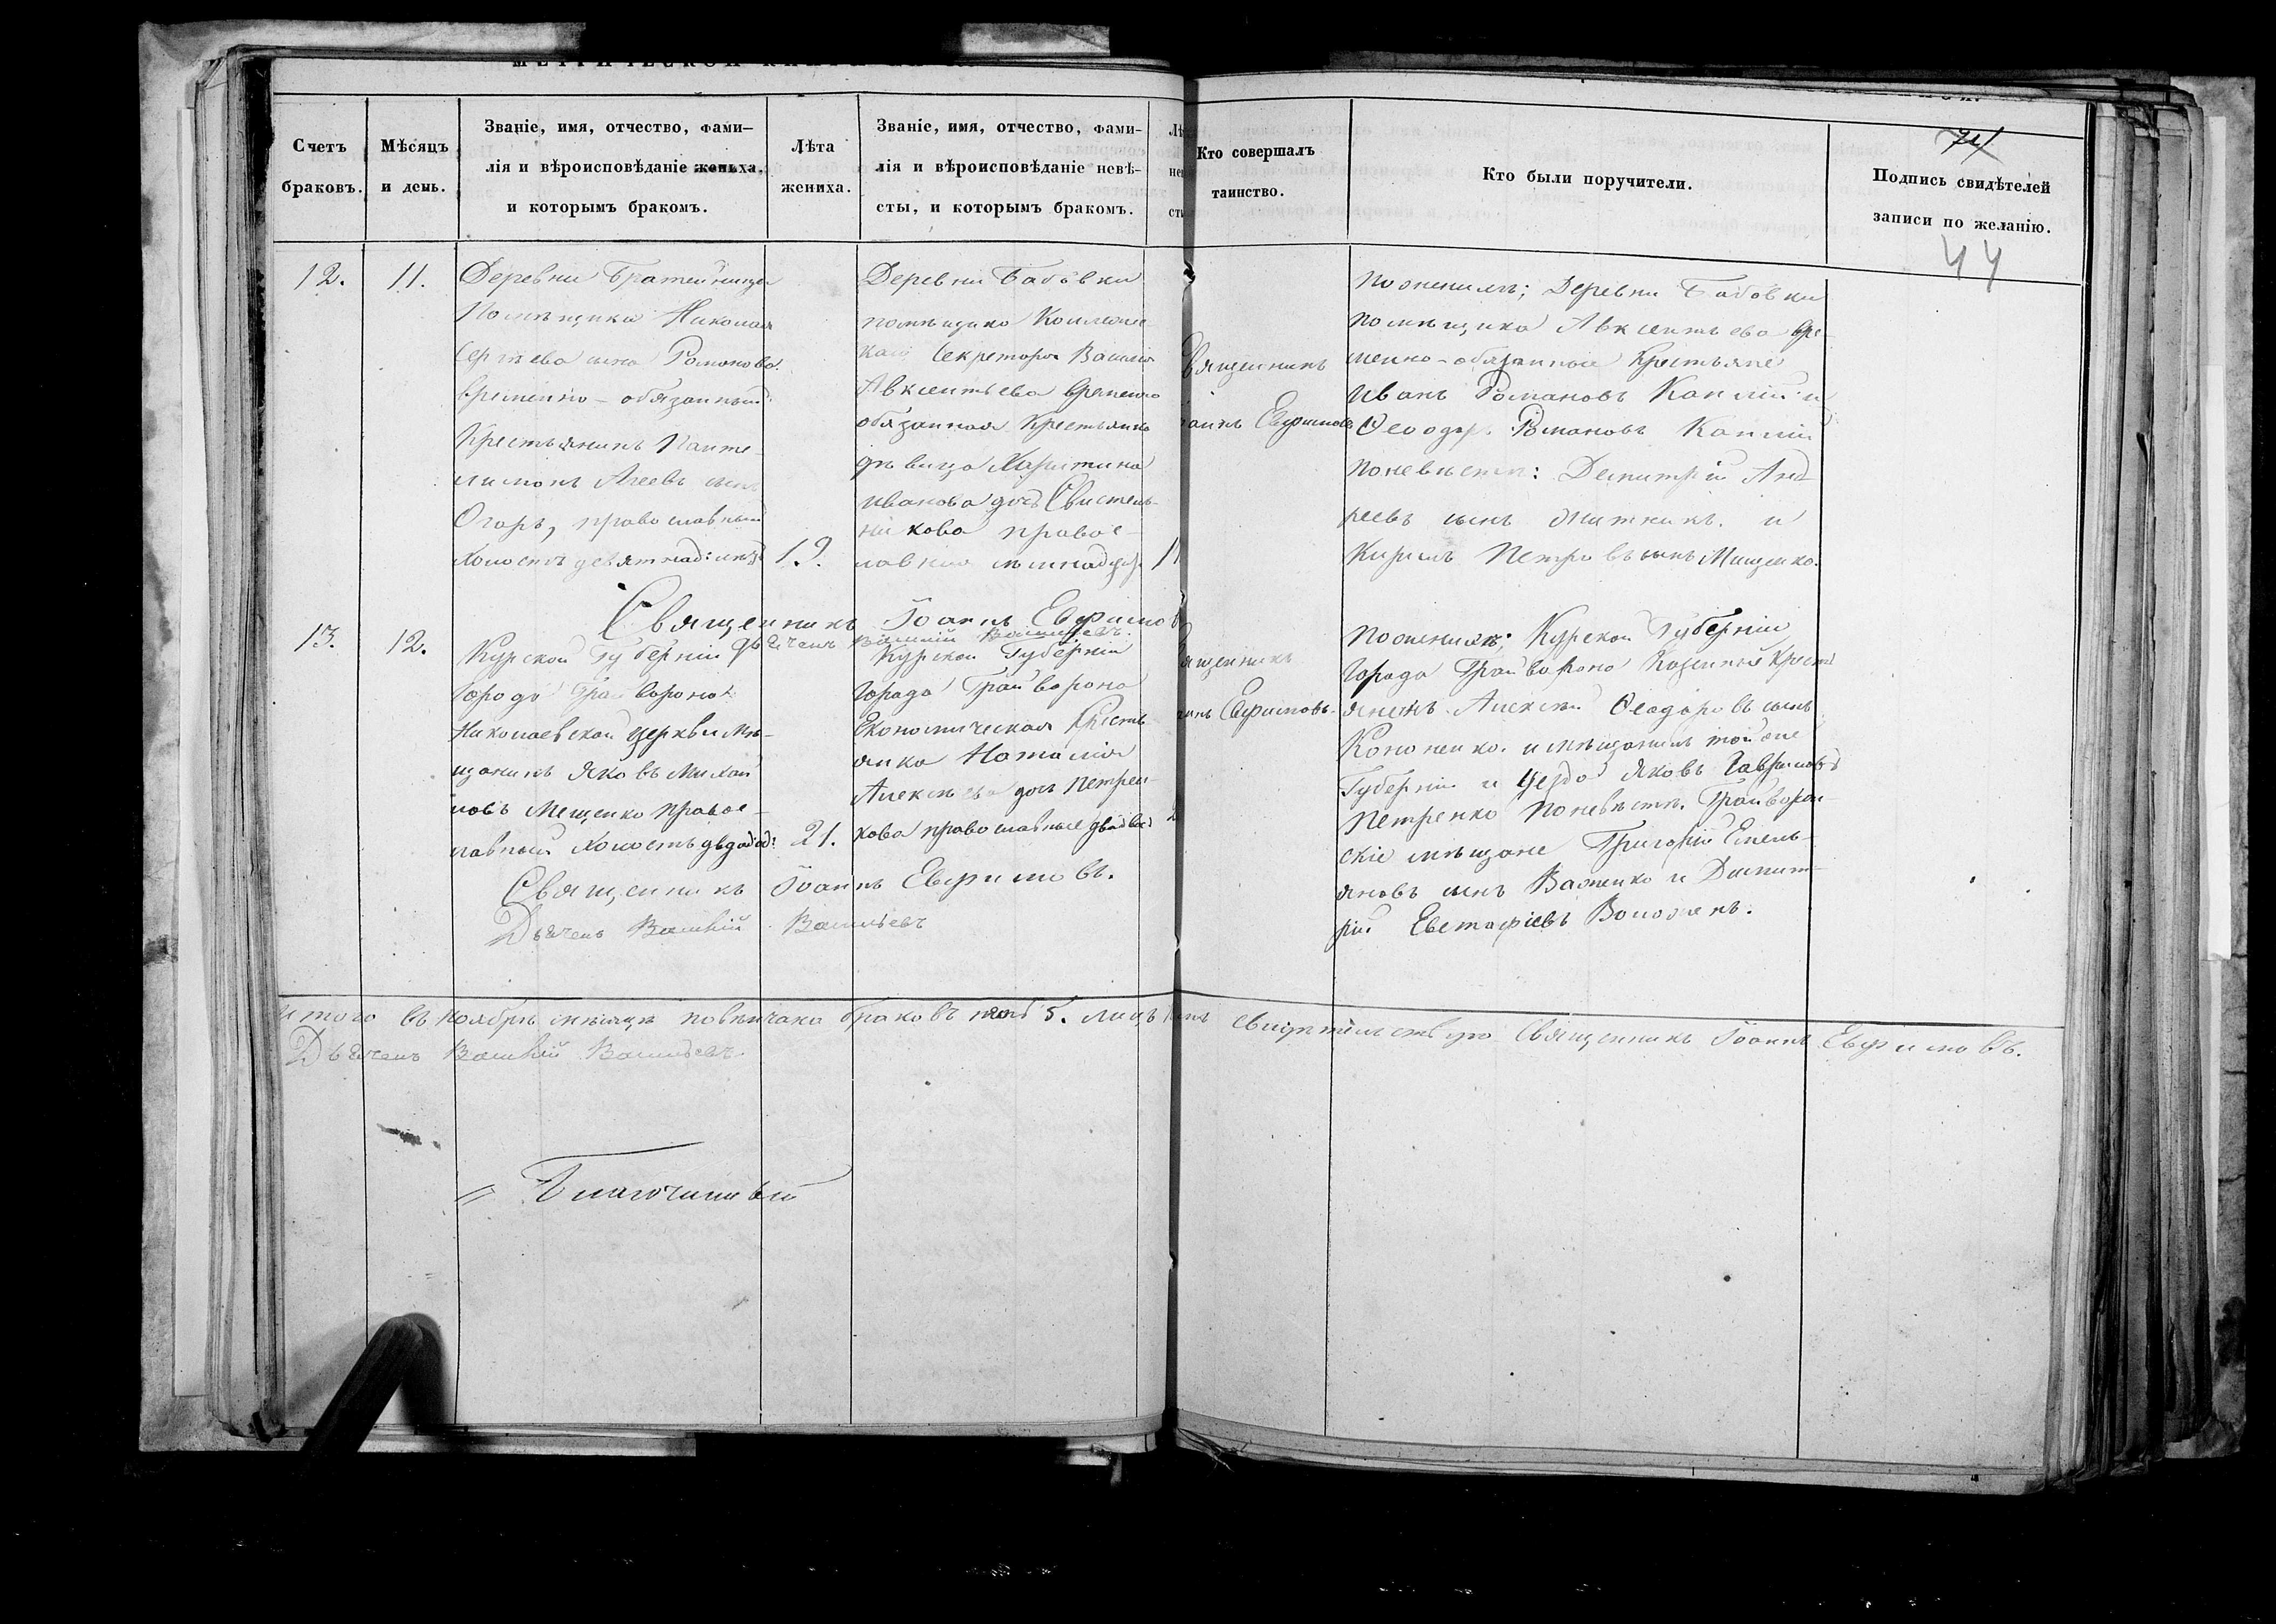 Счетъ
браковъ.
Мѣсяцъ
и день.
Званіе, имя, отчество, фами-
лія и вѣроисповѣданіе жениха,
и которымъ бракомъ.
Лѣта
жениха.
Званіе, имя, отчество, фами-
лія и вѣроисповѣданіе невѣ-
сты, и которымъ бракомъ.
Кто совершалъ
таинство.
Кто были поручители.
Подпись свидѣтелей
записи по желанію.
44
12.
11.
Деревни Братейницы
Помѣщика Николая
Сергѣева сына Романова
временно-обязанный
Крестьянинъ Панте
лимонъ Агеевъ сынъ
Огарь, православный
холостъ
19.
Деревни Бабовки
помѣщика Коллежс
каго Секретаря Василія
Авксентьева временно
обязанная Крестьянка
дѣвица Харитина
Иванова дочь Свистель
никова правос-
лавная
Священникъ
Іоаннъ Евфимовъ
Поженихѣ; Деревни Бабовки
помѣщика Авксентьева вре-
менно-обязанные Крестьяне
Иванъ Романовъ Каплій и
Ѳеодоръ Романовъ Каплій
Поневѣстѣ: Димитрій Анд
реевъ сынъ и
Кирилъ Петровъ сынъ Мищенко.
Священникъ Іоаннъ Евфимовъ
Дьячекъ Василій Васильевъ.
13.
12.
Курской Губерніи
Города Грайворона
Николаевской Церкви Мѣ-
щанинъ Яковъ Михай
ловъ Мещенко правос-
лавный холостъ
21.
Курской Губерніи
Города Грайворона
Економическая Кресть
янка Наталія
Алексѣева дочь Петрен-
кова православная
Священникъ
Евфимовъ.
Поженихѣ; Курской Губерніи
Города Грайворона Казенный Кресть
янинъ Алексѣй Ѳеодоровъ сынъ
Кононенко. и мѣщанинъ той же
Губерніи и Уезда Яковъ Гавриловъ
Петренко Поневѣстѣ. Грайворон-
скіе мѣщане Григорій Емель-
яновъ сынъ Важенко и Димит-
рій Евстафіевъ
Священникъ Іоаннъ Евфимовъ.
Дьячекъ Василій Васильевъ
Итого въ Ноябрѣ мѣсяцѣ повѣнчано браковъ 5. свидѣтельствую Священникъ Іоаннъ Евфимовъ.
Дьячекъ Василій Васильевъ
Благочинный